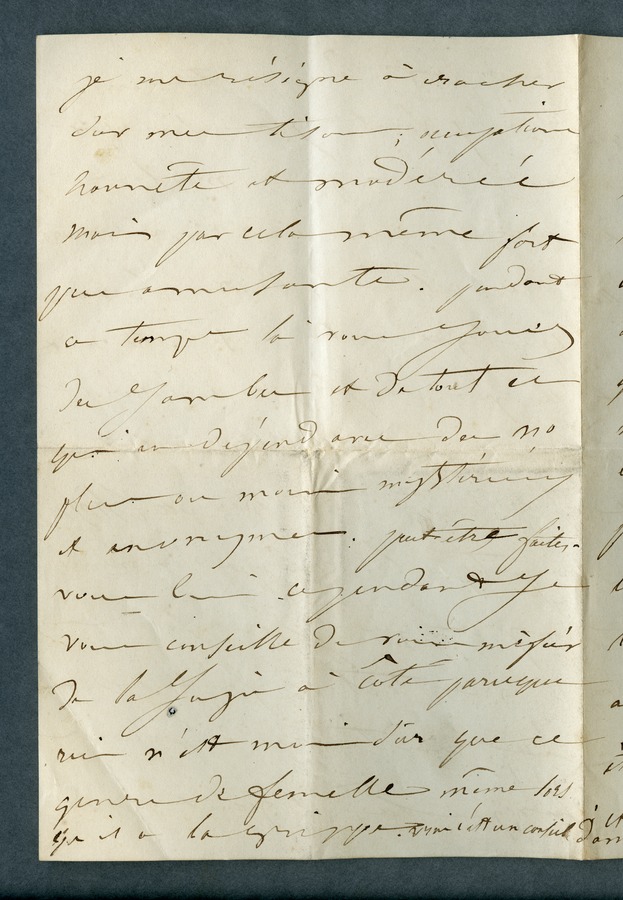 je me résigne à cracher
sur mes tisons, occupation
honnête et modérée
mais par cela même fort
peu amusante. pendant
ce temps là vous jouez
des jambes et de tout ce
qui en dépend avec des no
plus ou moins mystérieux
et anonymes. peut-être faites-
vous bien cependant je
vous conseille de vous méfier
de la Sugie à côté parceque
rien n'est moins sûr que ce
genre de femelle même lors
qu'il a la grippe. ceci c'est un conseil d'am